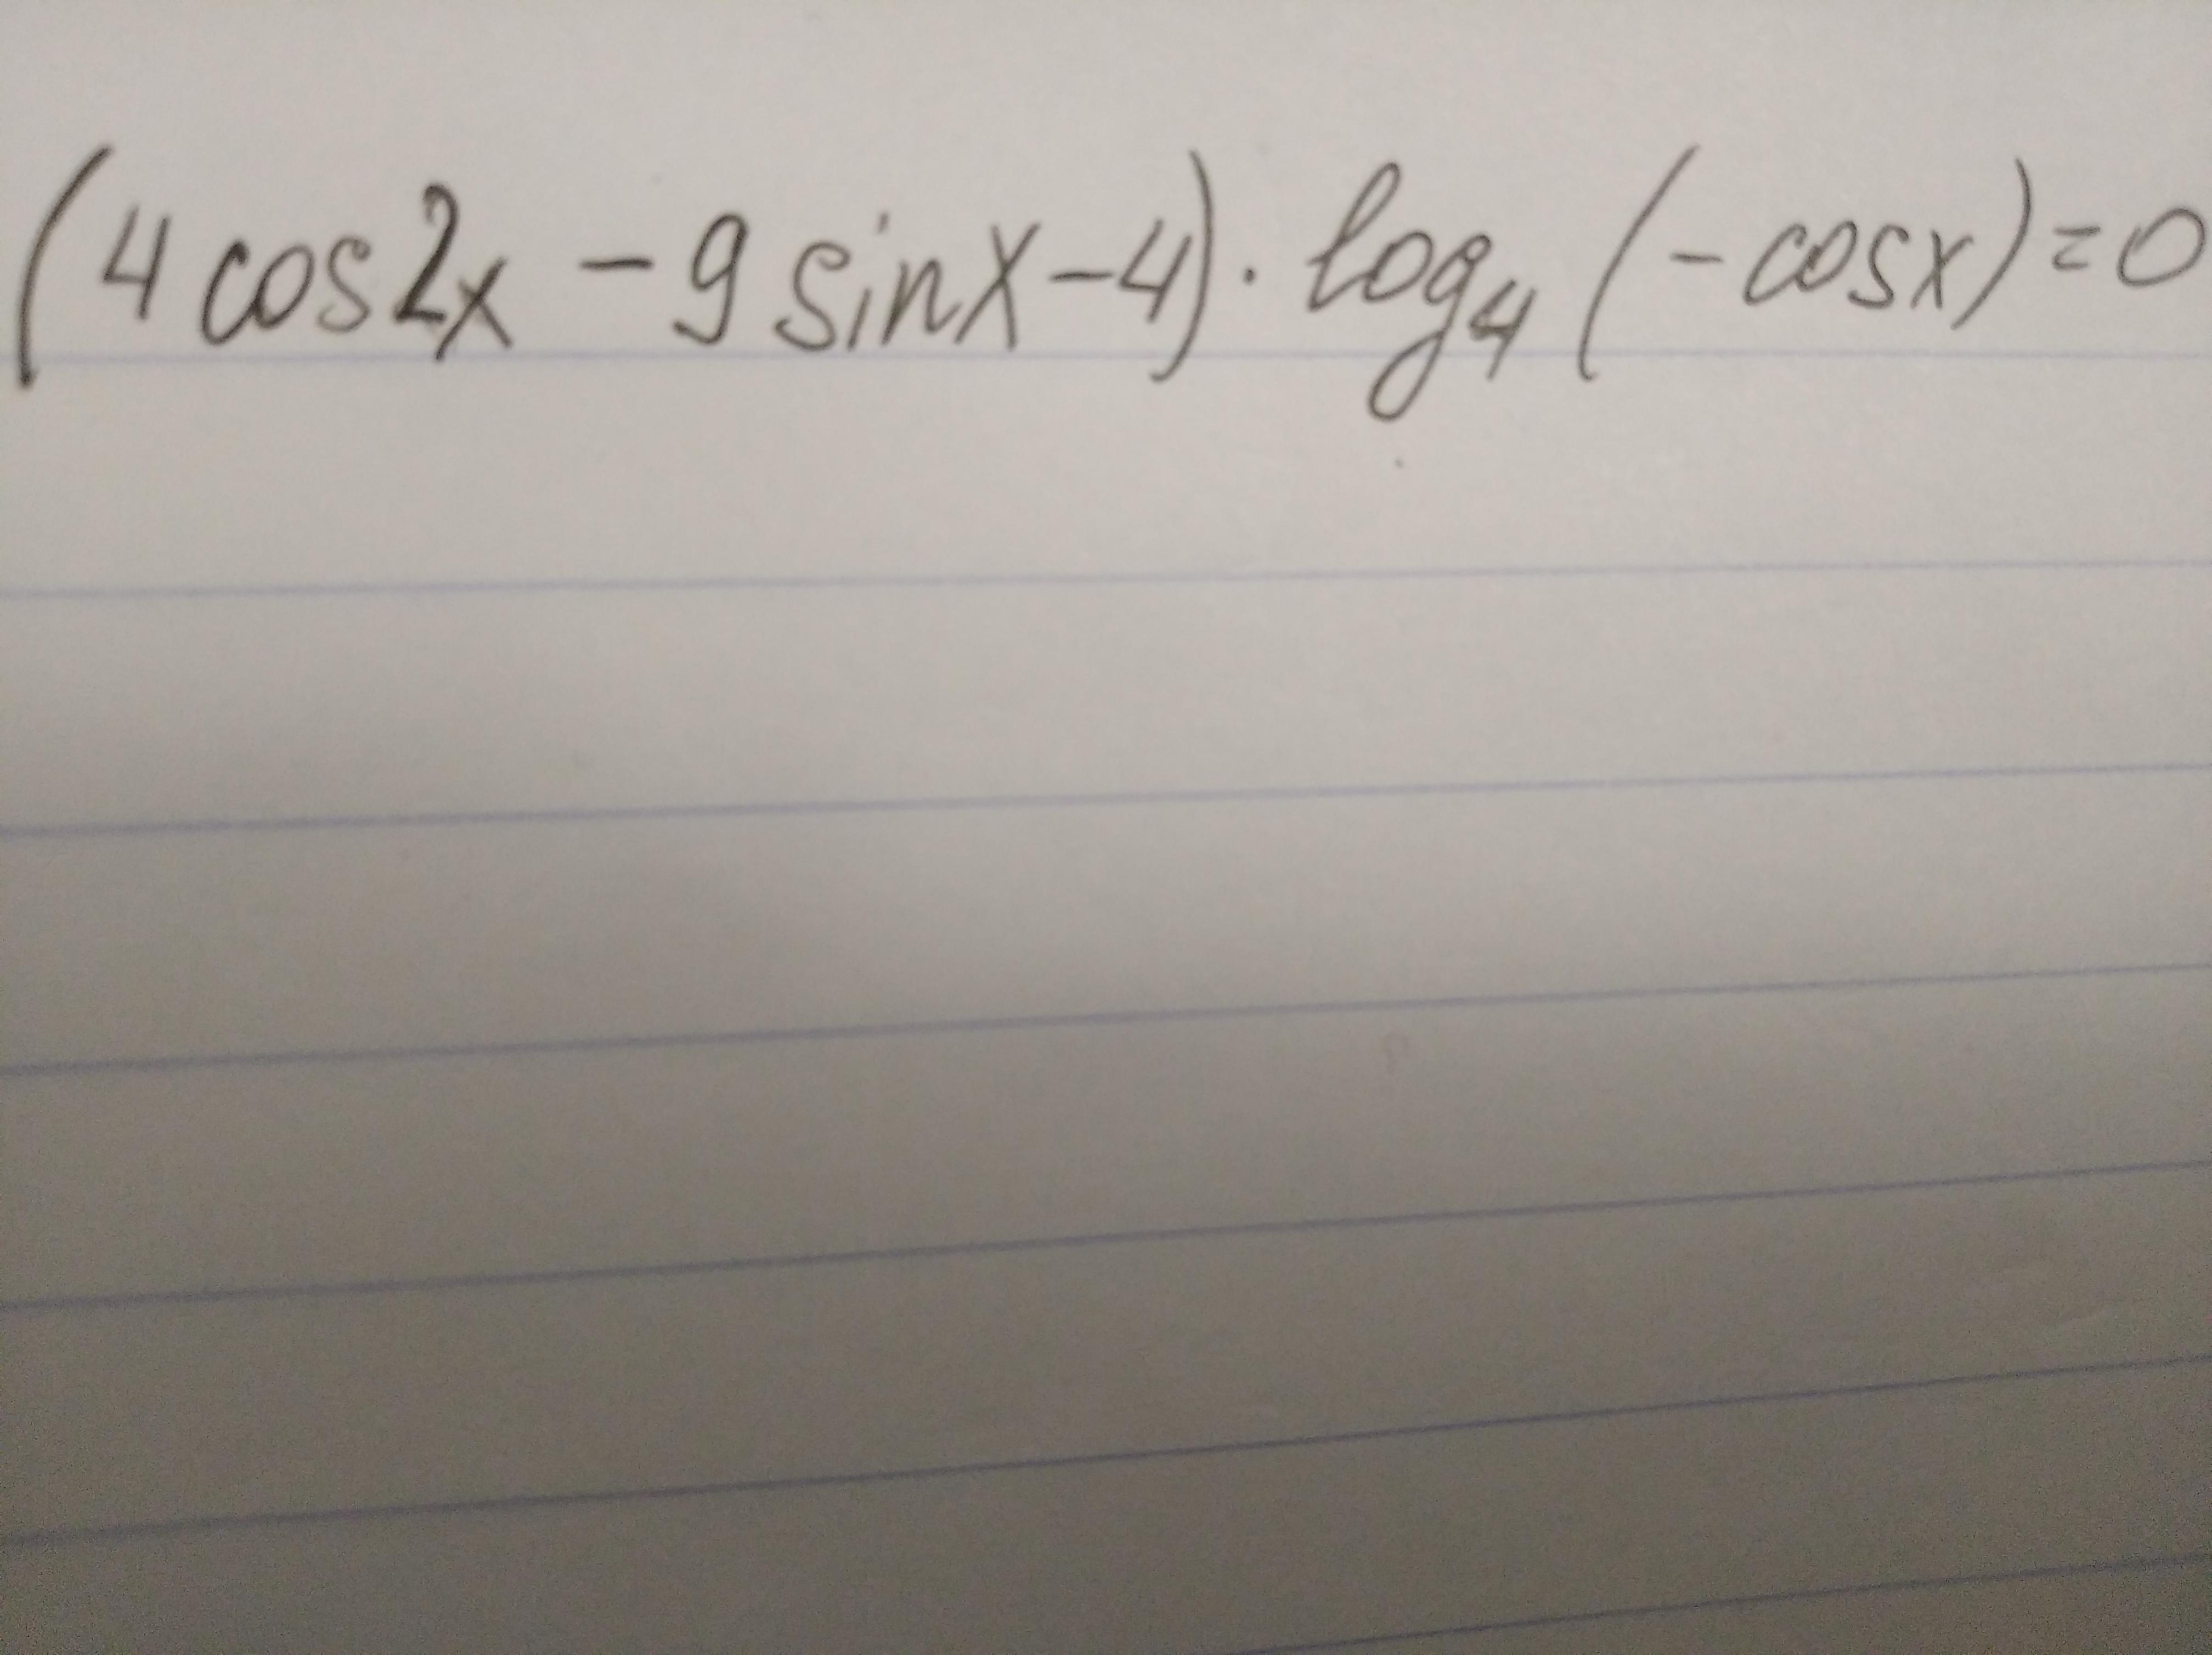 (4 cos2x - 9 sinx - 4) · log₄ (- cosx) = 0